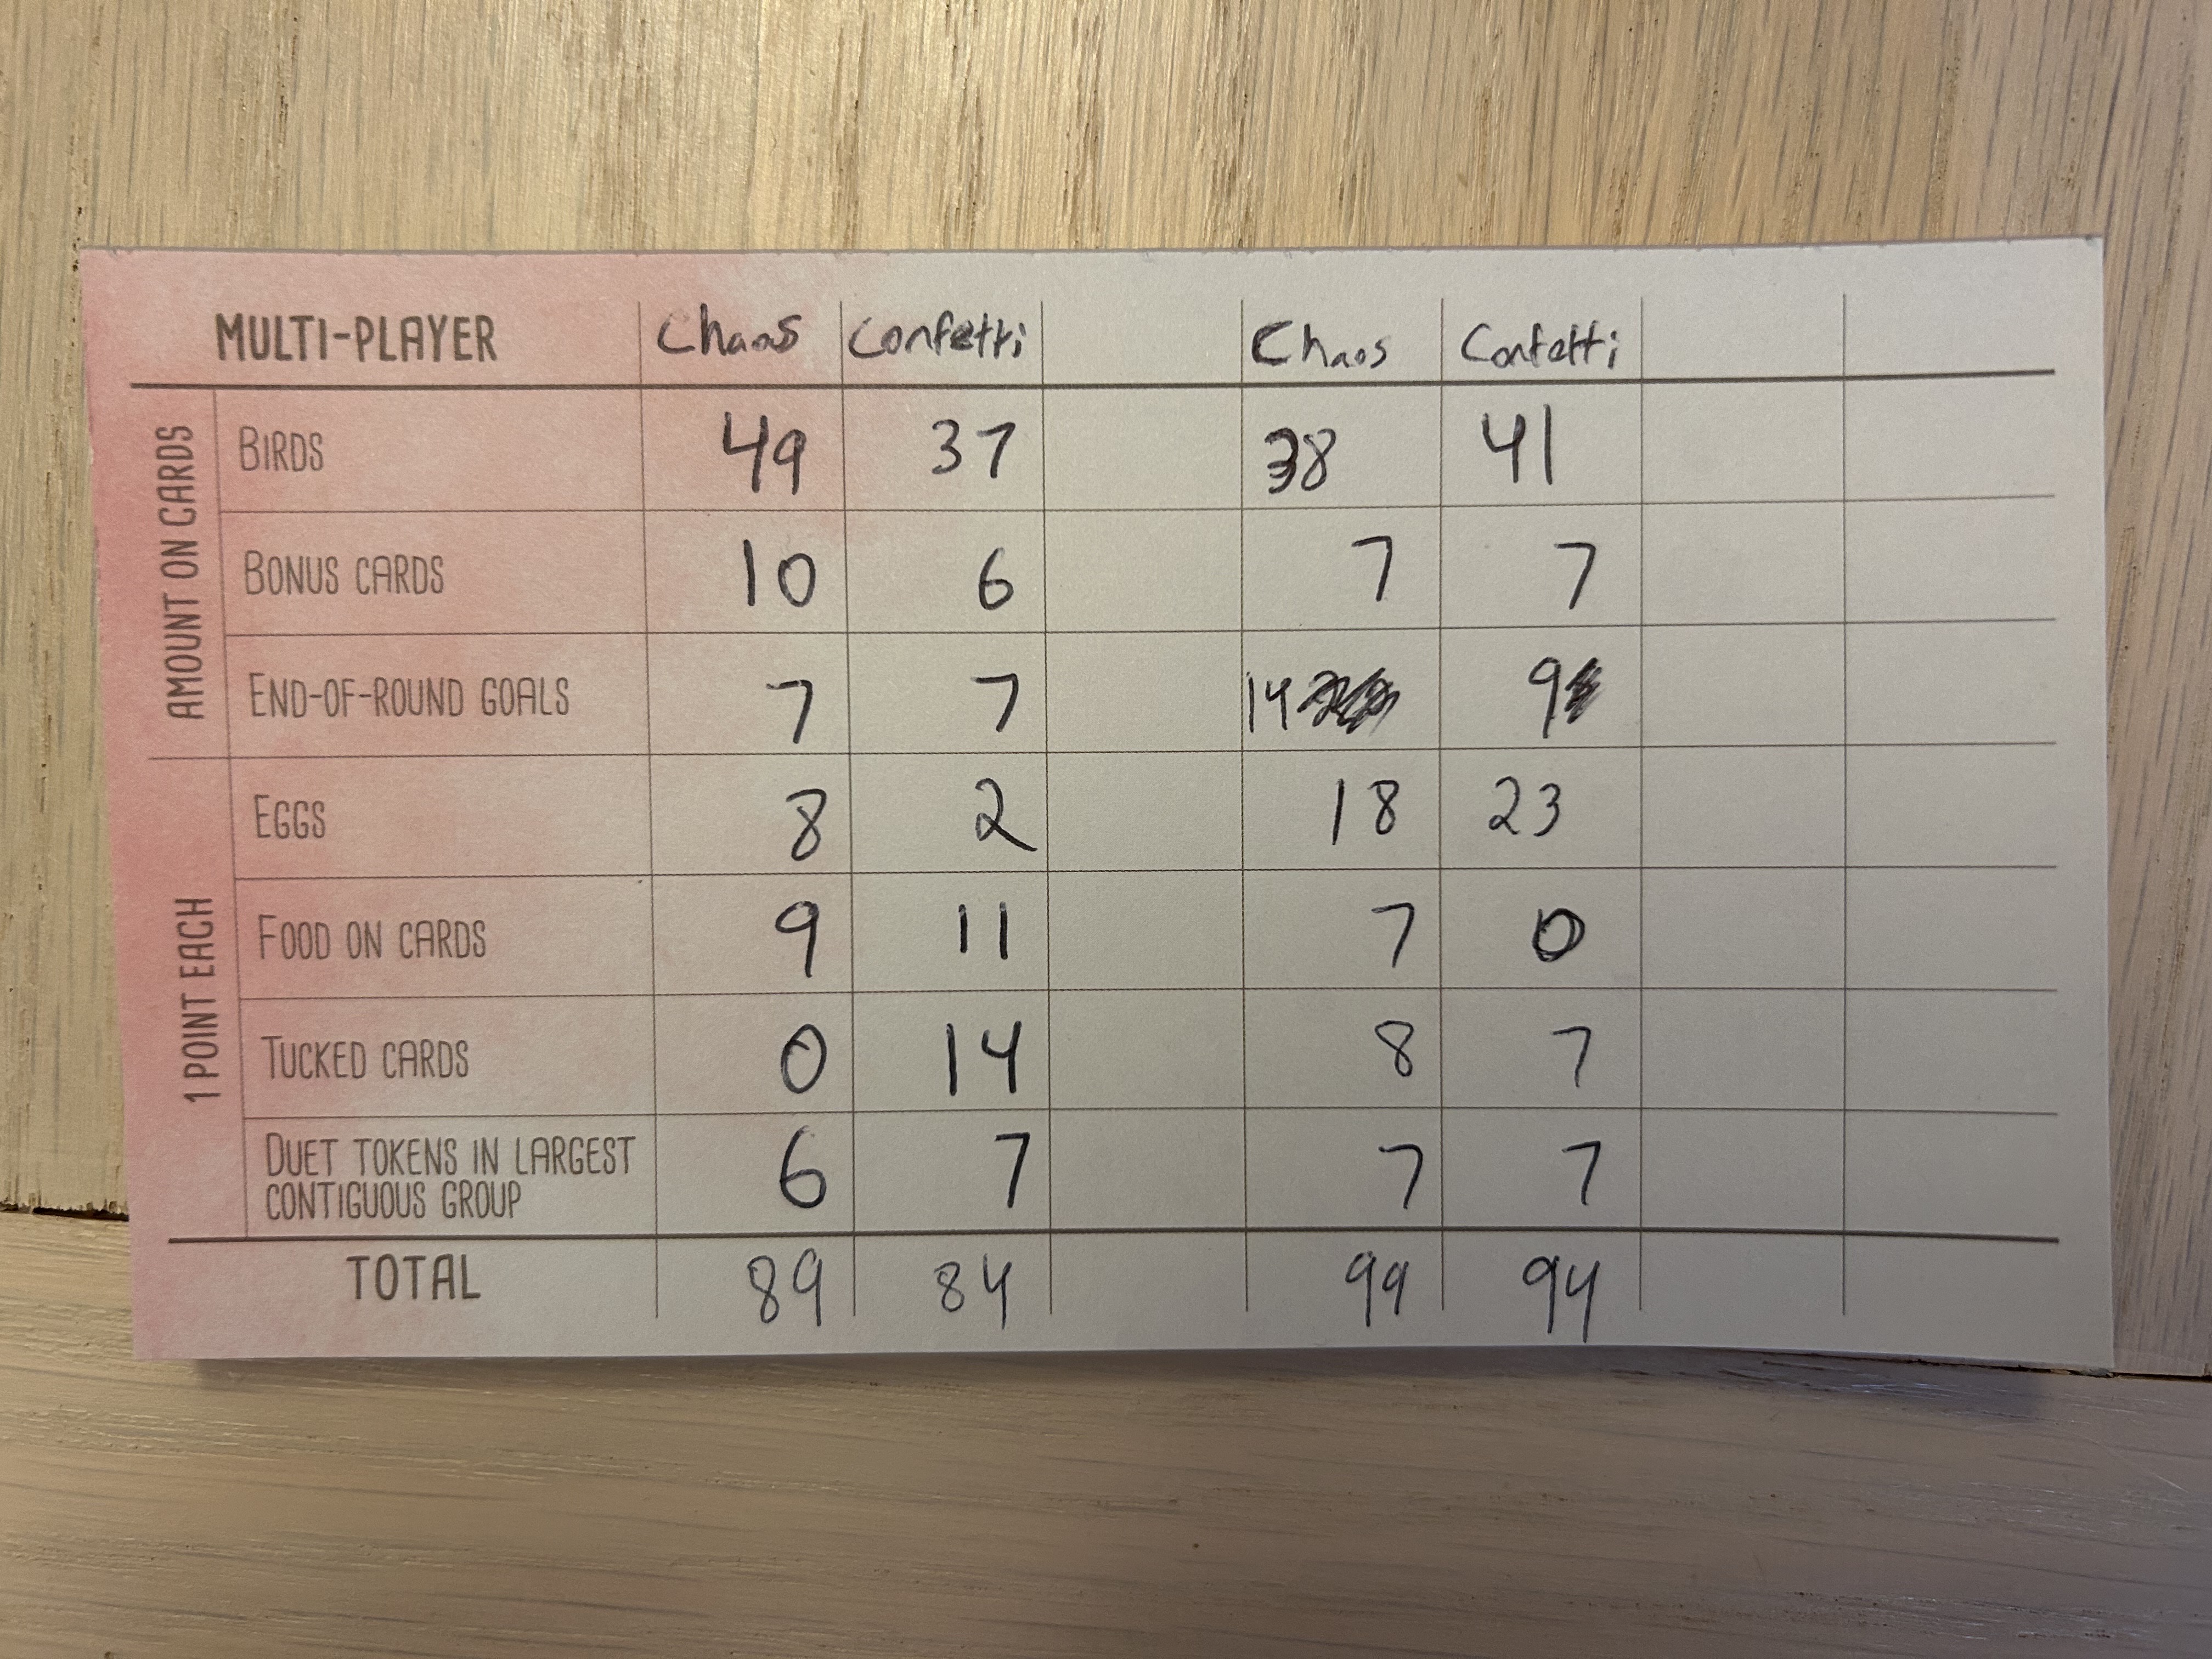 MULTI-PLAYER Chaos Confetti Chaos Confetti
AMOUNT ON CARDS
BIRDS 49 37 38 41
BONUS CARDS 10 6 7 7
END-OF-ROUND GOALS 7 7 14 9
1 POINT EACH
EGGS 8 2 18 23
FOOD ON CARDS 9 11 7 0
TUCKED CARDS 0 14 8 7
DUET TOKENS IN LARGEST
CONTIGUOUS GROUP 6 7 7 7
TOTAL 89 84 99 94